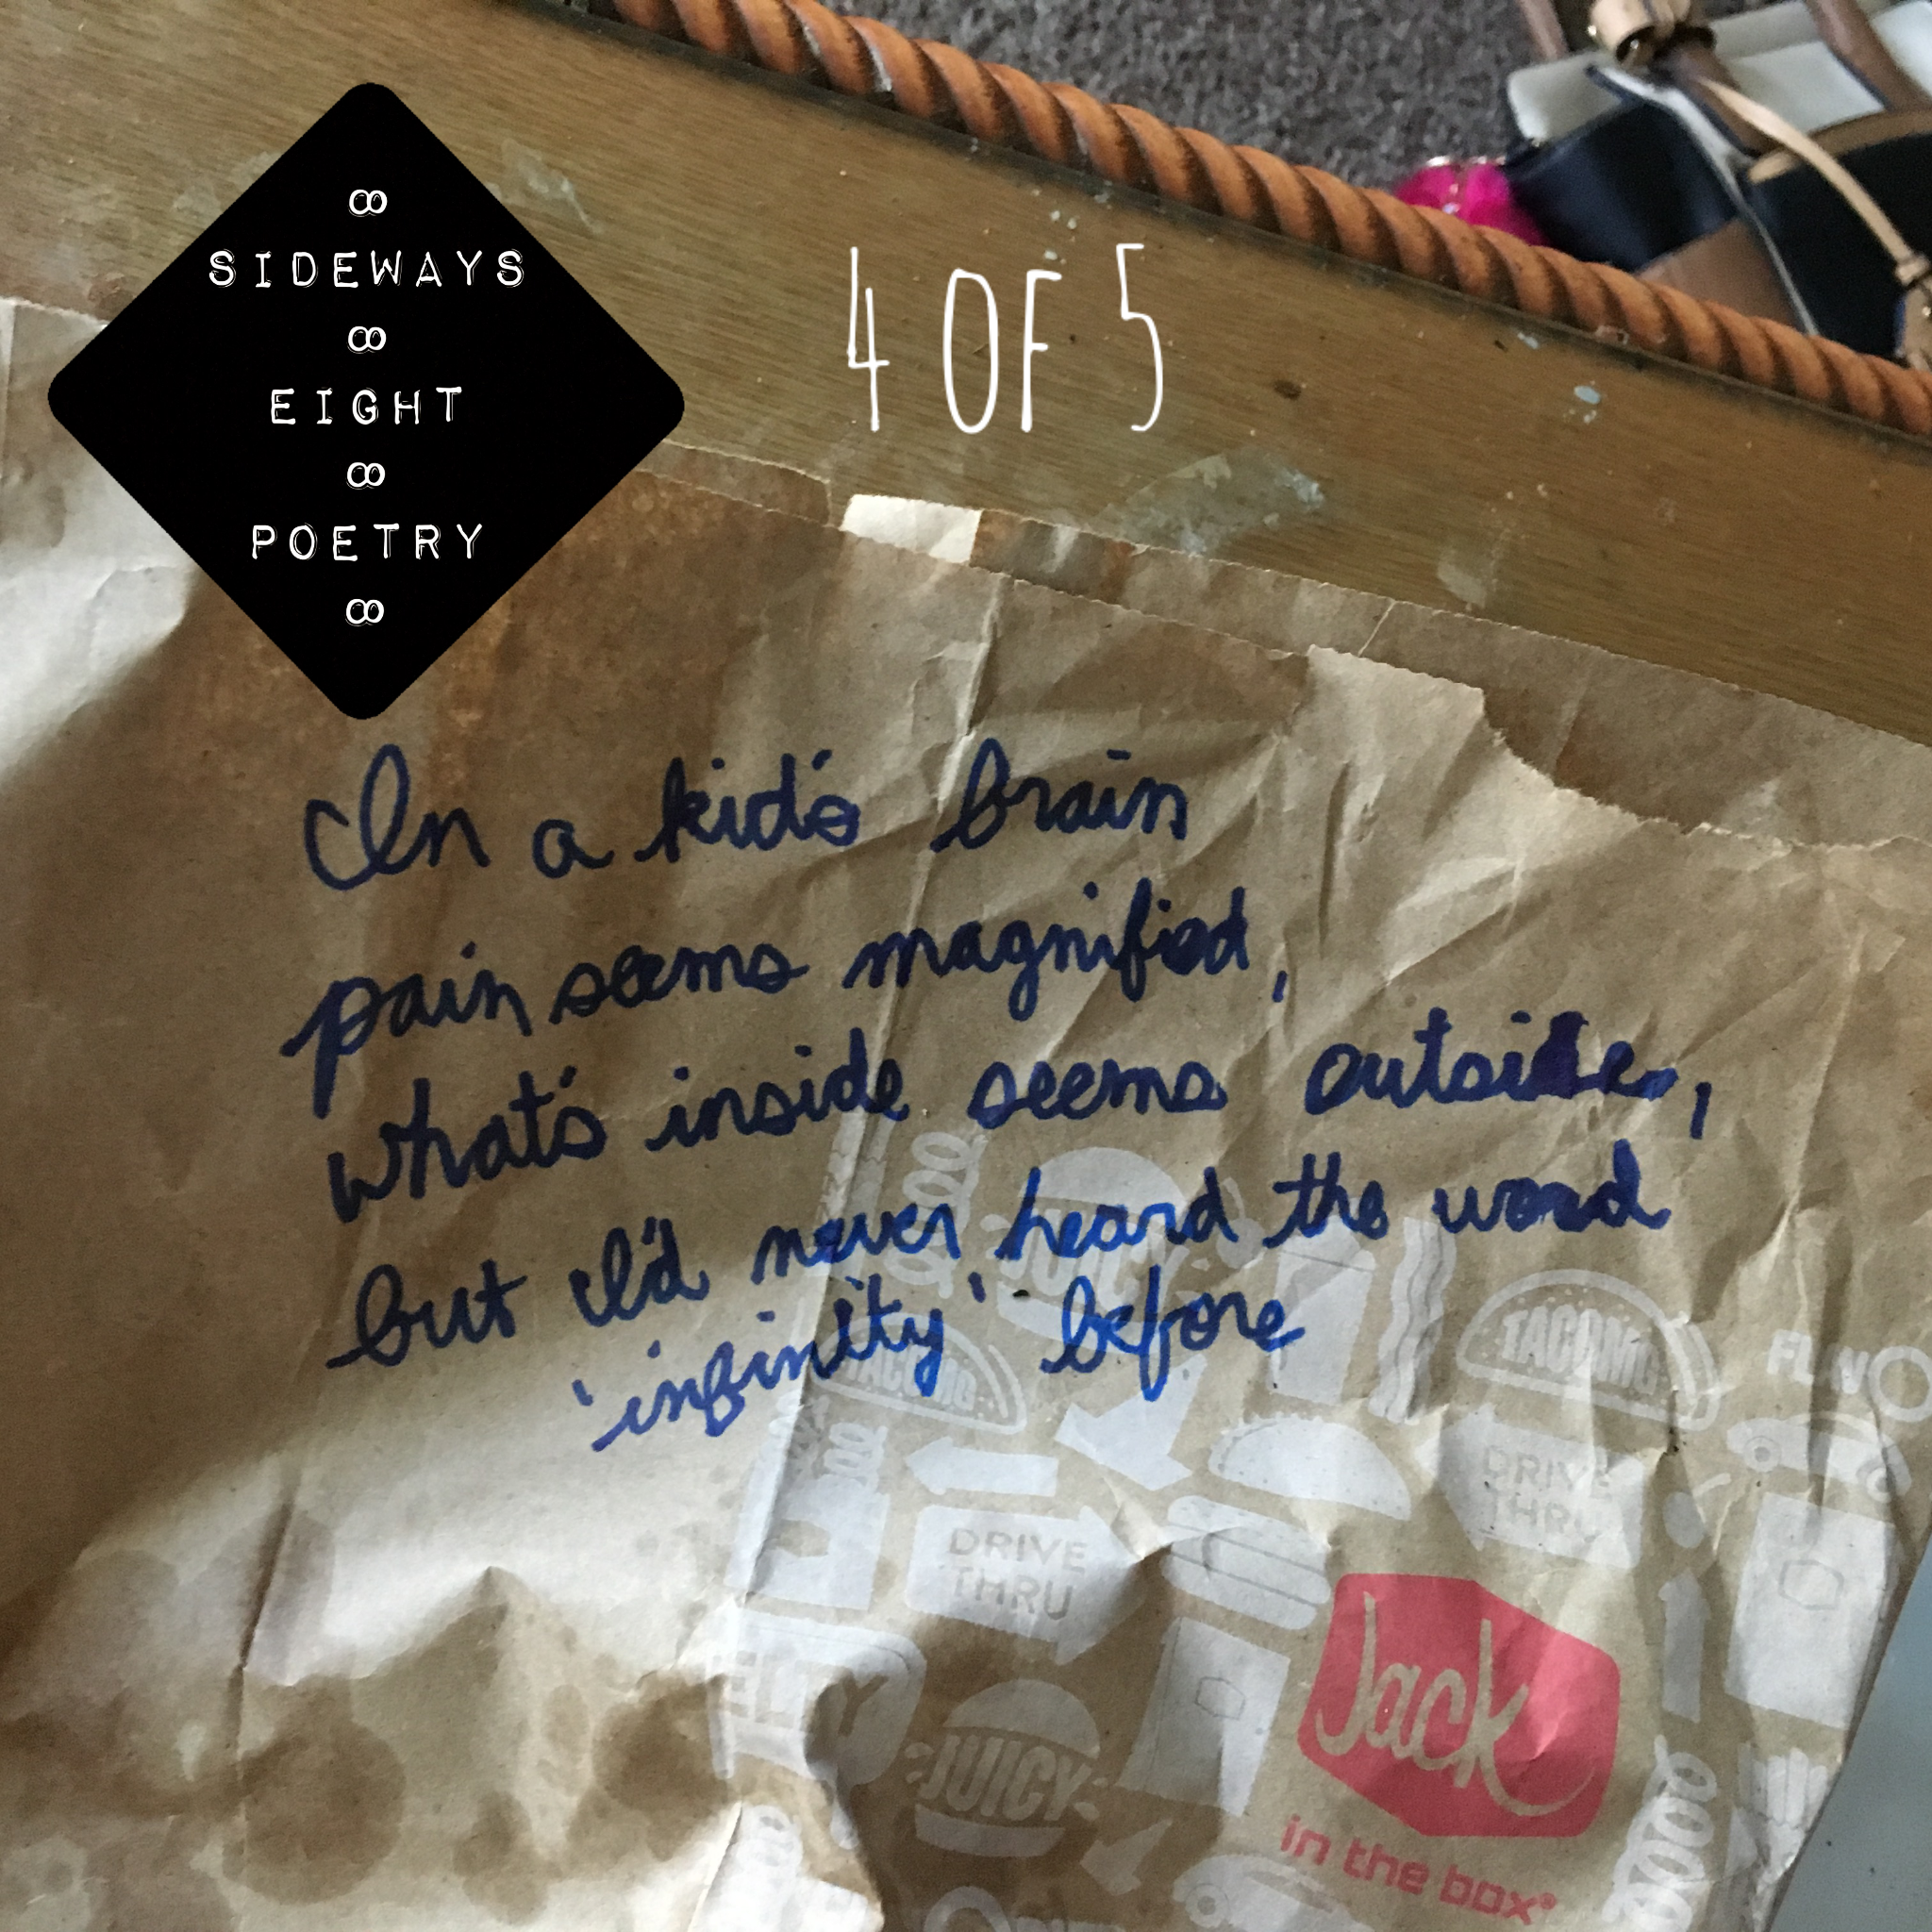 ∞
SIDEWAYS
∞
EIGHT
∞
POETRY
∞
4 OF 5
In a kid's brain
pain seems magnified,
what's inside seems outside,
but I'd never heard the word
'infinity' before
JUICY
TACOMG
TACOMG
FLAVO
DRIVE
THRU
DRIVE
THRU
JUICY
Jack
in the box®